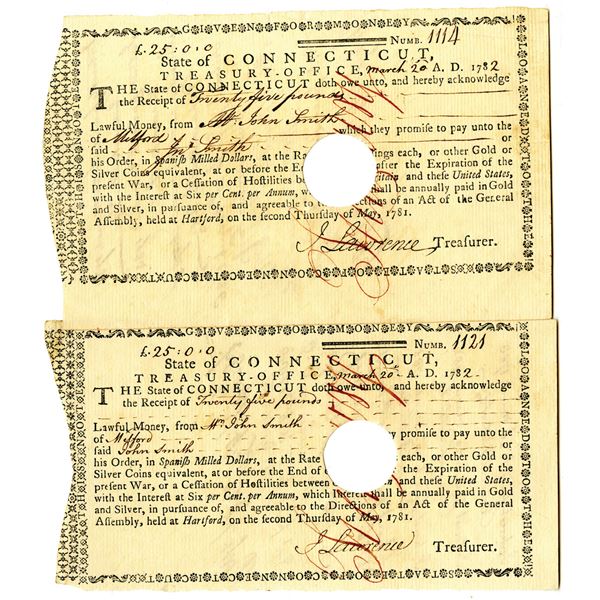 GIVEN FOR MONEY
£.25:0.0
NUMB. 1114
State of CONNECTICUT,
TREASURY-OFFICE, March 20 A. D. 1782
THE State of CONNECTICUT doth owe unto, and hereby acknowledge
the Receipt of Twenty five pounds
Lawful Money, from Mr. John Smith
of Milford which they promise to pay unto the
said Smith or
his Order, in Spanish Milled Dollars, at the Rate ings each, or other Gold or
Silver Coins equivalent, at or before the End after the Expiration of the
present War, or a Cessation of Hostilities between tain and these United States,
with the Interest at Six per Cent. per Annum, whic shall be annually paid in Gold
and Silver, in pursuance of, and agreeable to the Directions of an Act of the General
Assembly, held at Hartford, on the second Thursday of May, 1781.
J Lawrence Treasurer.
LOANED TO THE
STATE OF CONNECTICUT
GIVEN FOR MONEY
£.25:0.0
NUMB. 1121
State of CONNECTICUT,
TREASURY-OFFICE, March 20 A. D. 1782
THE State of CONNECTICUT doth owe unto, and hereby acknowledge
the Receipt of Twenty five pounds
Lawful Money, from Mr. John Smith
of Milford y promise to pay unto the
said John Smith or
his Order, in Spanish Milled Dollars, at the Rate each, or other Gold or
Silver Coins equivalent, at or before the End of the Expiration of the
present War, or a Cessation of Hostilities between in and these United States,
with the Interest at Six per Cent. per Annum, which Interest shall be annually paid in Gold
and Silver, in pursuance of, and agreeable to the Directions of an Act of the General
Assembly, held at Hartford, on the second Thursday of May, 1781.
J Lawrence Treasurer.
LOANED TO THE
STATE OF CONNECTICUT